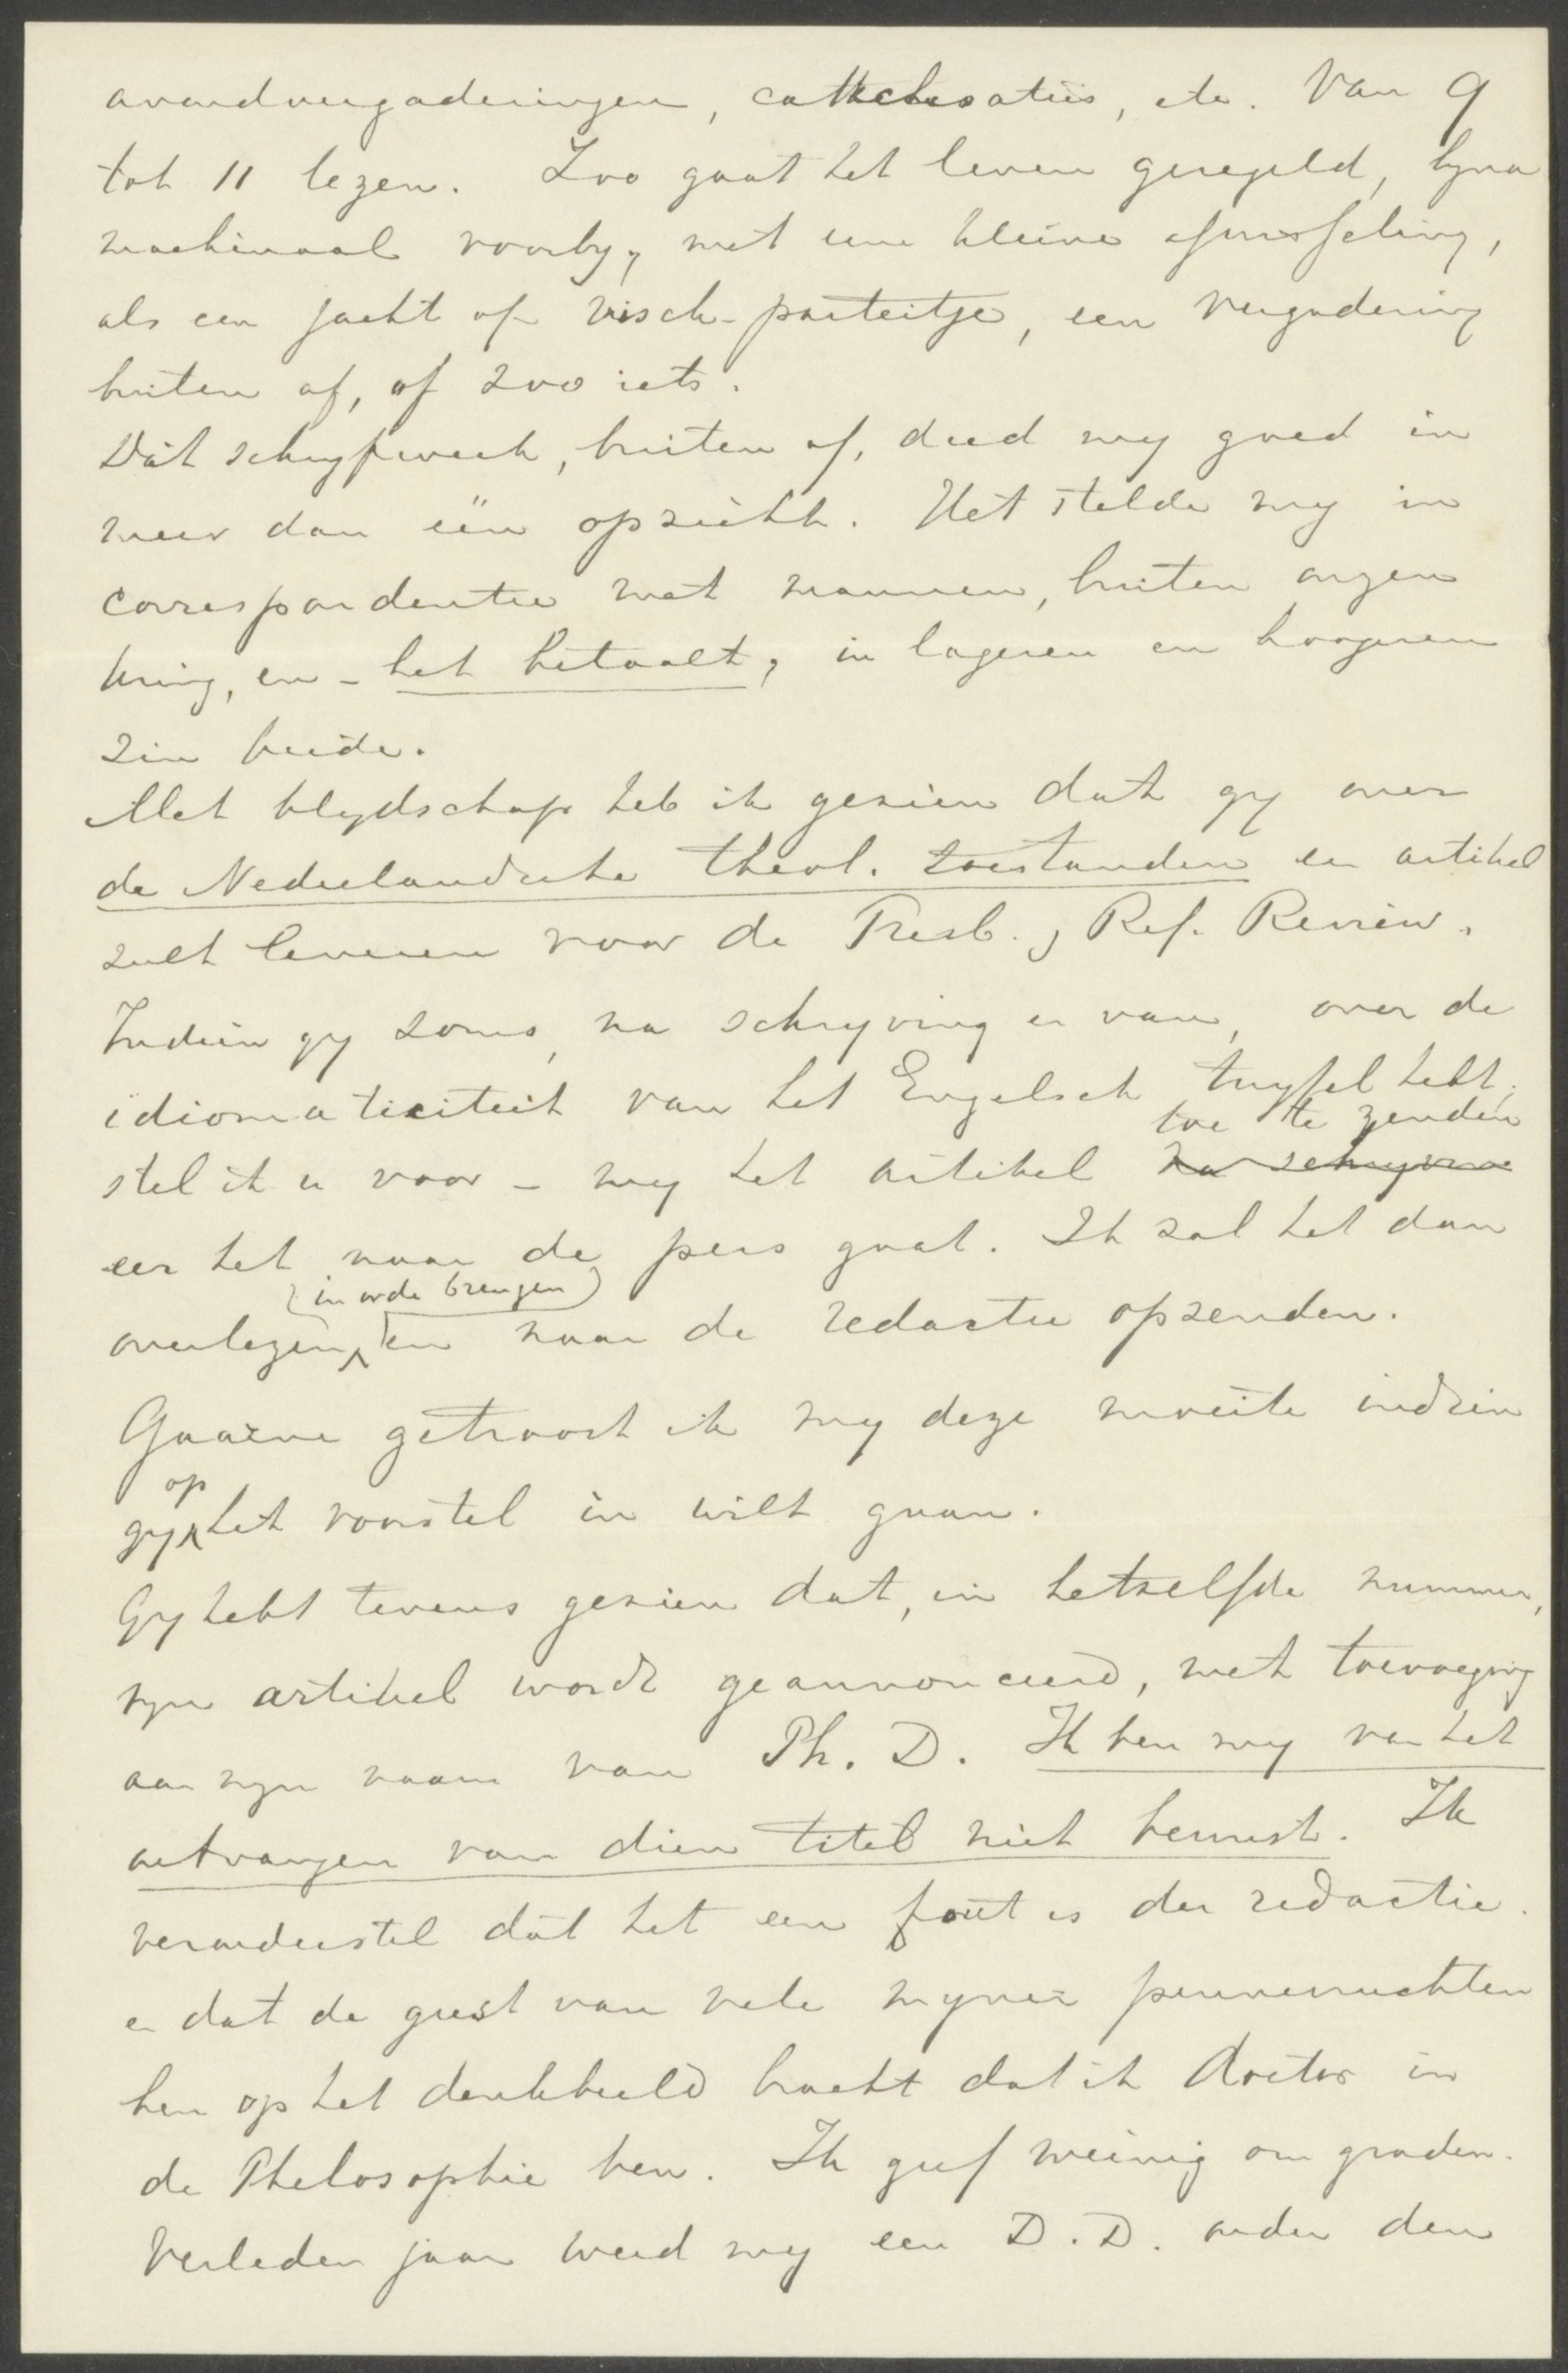 avondvergaderingen, catechesaties, etc. Van 9
tot 11 lezen. Zoo gaat het leven geregeld, byna
machinaal voorby, met eene kleine afwisseling,
als een jacht of visch-parteitje, een vergadering
buiten af, of zoo iets.
Dàt schryfwerk, buiten af, deed my goed in
meer dan één opzicht. Het stelde my in
correspondentie met mannen, buiten onzen
kring, en - het betaalt, in lageren en hoogeren
zin beide.
Met blydschap heb ik gezien dat gy over
de Nederlandsche theol. toestanden een artikel
zult leveren voor de Presb. & Ref. Review.
Indien gy soms, na schryving er van, over de
idiomaticiteit van het Engelsch twyfel hebt,
stel ik u voor - my het artikel toe te zenden
eer het naar de pers gaat. Ik zal het dan
overlezen, (in orde brengen) en naar de redactie opzenden.
Gaarne getroost ik my deze moeite indien
gy op het voorstel in wilt gaan.
Gy hebt tevens gezien dat, in hetzelfde nummer,
myn artikel wordt geannonceerd, met toevoeging
aan myn naam van Ph. D. Ik ben my van het
ontvangen van dien titel niet bewust. Ik
veronderstel dat het een fout is der redactie.
en dat de geest van vele myner pennevruchten
hen op het denkbeeld bracht dat ik doctor in
de Philosophie ben. Ik geef weinig om graden.
Verleden jaar werd my een D. D. onder den